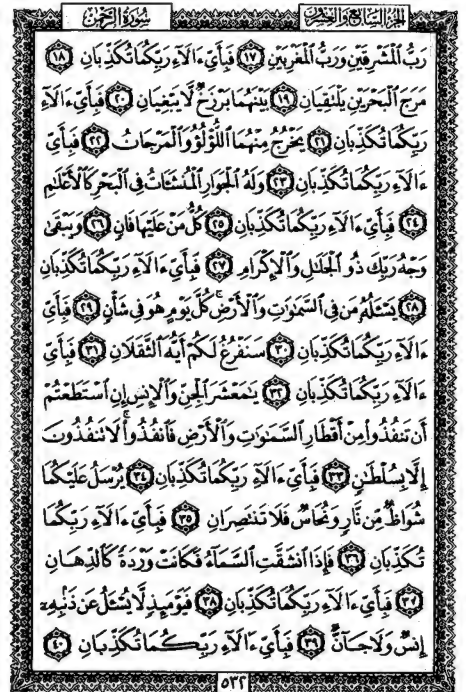 سُورَةُ الرَّحْمٰن
الجزء السابع والعشرون
رَبُّ ٱلْمَشْرِقَيْنِ وَرَبُّ ٱلْمَغْرِبَيْنِ ١٧ فَبِأَىِّ ءَالَآءِ رَبِّكُمَا تُكَذِّبَانِ ١٨
مَرَجَ ٱلْبَحْرَيْنِ يَلْتَقِيَانِ ١٩ بَيْنَهُمَا بَرْزَخٌ لَّا يَبْغِيَانِ ٢٠ فَبِأَىِّ ءَالَآءِ
رَبِّكُمَا تُكَذِّبَانِ ٢١ يَخْرُجُ مِنْهُمَا ٱللُّؤْلُؤُ وَٱلْمَرْجَانُ ٢٢ فَبِأَىِّ
ءَالَآءِ رَبِّكُمَا تُكَذِّبَانِ ٢٣ وَلَهُ ٱلْجَوَارِ ٱلْمُنشَـَٔاتُ فِى ٱلْبَحْرِ كَٱلْأَعْلَٰمِ
٢٤ فَبِأَىِّ ءَالَآءِ رَبِّكُمَا تُكَذِّبَانِ ٢٥ كُلُّ مَنْ عَلَيْهَا فَانٍ ٢٦ وَيَبْقَىٰ
وَجْهُ رَبِّكَ ذُو ٱلْجَلَٰلِ وَٱلْإِكْرَامِ ٢٧ فَبِأَىِّ ءَالَآءِ رَبِّكُمَا تُكَذِّبَانِ
٢٨ يَسْـَٔلُهُۥ مَن فِى ٱلسَّمَٰوَٰتِ وَٱلْأَرْضِ ۚ كُلَّ يَوْمٍ هُوَ فِى شَأْنٍ ٢٩ فَبِأَىِّ
ءَالَآءِ رَبِّكُمَا تُكَذِّبَانِ ٣٠ سَنَفْرُغُ لَكُمْ أَيُّهَ ٱلثَّقَلَانِ ٣١ فَبِأَىِّ
ءَالَآءِ رَبِّكُمَا تُكَذِّبَانِ ٣٢ يَٰمَعْشَرَ ٱلْجِنِّ وَٱلْإِنسِ إِنِ ٱسْتَطَعْتُمْ
أَن تَنفُذُوا۟ مِنْ أَقْطَارِ ٱلسَّمَٰوَٰتِ وَٱلْأَرْضِ فَٱنفُذُوا۟ ۚ لَا تَنفُذُونَ
إِلَّا بِسُلْطَٰنٍ ٣٣ فَبِأَىِّ ءَالَآءِ رَبِّكُمَا تُكَذِّبَانِ ٣٤ يُرْسَلُ عَلَيْكُمَا
شُوَاظٌ مِّن نَّارٍ وَنُحَاسٌ فَلَا تَنتَصِرَانِ ٣٥ فَبِأَىِّ ءَالَآءِ رَبِّكُمَا
تُكَذِّبَانِ ٣٦ فَإِذَا ٱنشَقَّتِ ٱلسَّمَآءُ فَكَانَتْ وَرْدَةً كَٱلدِّهَانِ
٣٧ فَبِأَىِّ ءَالَآءِ رَبِّكُمَا تُكَذِّبَانِ ٣٨ فَيَوْمَئِذٍ لَّا يُسْـَٔلُ عَن ذَنۢبِهِۦٓ
إِنسٌ وَلَا جَآنٌّ ٣٩ فَبِأَىِّ ءَالَآءِ رَبِّكُمَا تُكَذِّبَانِ ٤٠
٥٣٢